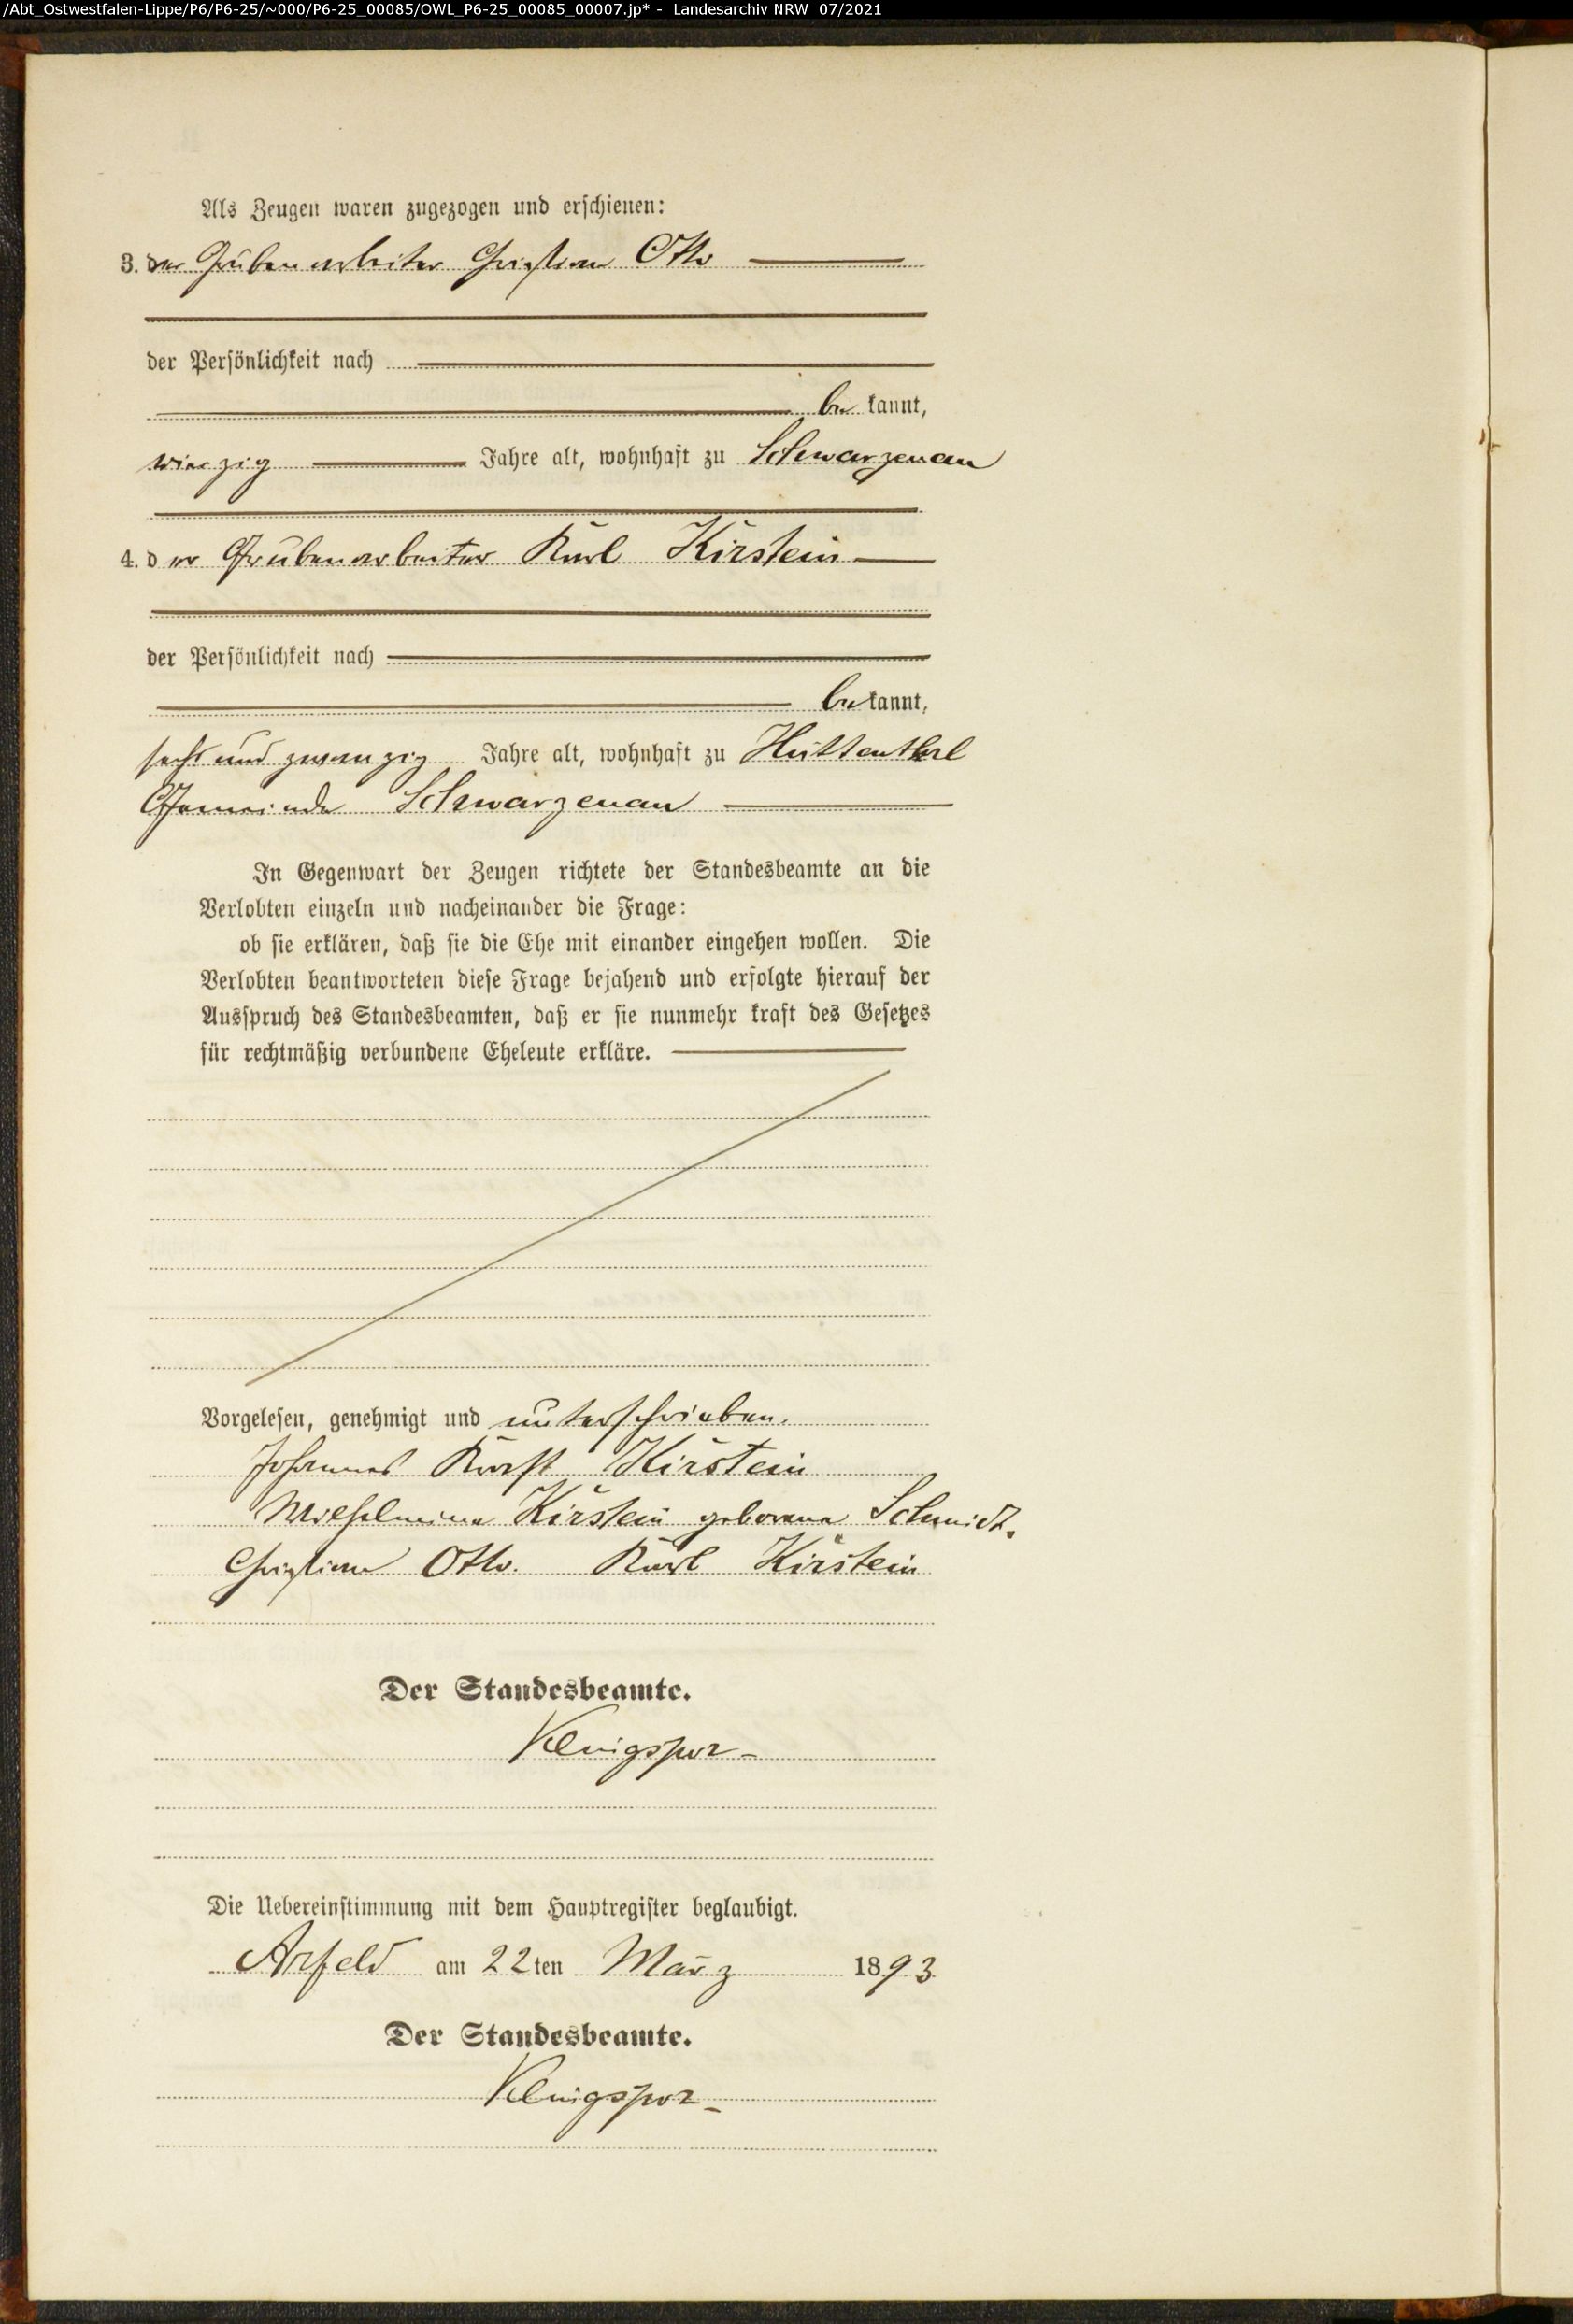 /Abt_Ostwestfalen-Lippe/P6/P6-25/~000/P6-25_00085/OWL_P6-25_00085_00007.jp* - Landesarchiv NRW 07/2021
Als Zeugen waren zugezogen und erschienen:
3. der Grubenarbeiter Christian Otto
der Persönlichkeit nach
be kannt,
vierzig Jahre alt, wohnhaft zu Schwarzenau
4. der Grubenarbeiter Karl Kirstein
der Persönlichkeit nach
be kannt,
sechs und zwanzig Jahre alt, wohnhaft zu Hüttenthal
Gemeinde Schwarzenau
In Gegenwart der Zeugen richtete der Standesbeamte an die
Verlobten einzeln und nacheinander die Frage:
ob sie erklären, daß sie die Ehe mit einander eingehen wollen. Die
Verlobten beantworteten diese Frage bejahend und erfolgte hierauf der
Ausspruch des Standesbeamten, daß er sie nunmehr kraft des Gesetzes
für rechtmäßig verbundene Eheleute erkläre.
Vorgelesen, genehmigt und unterschrieben.
Johannes Kirstein
Wilhelmine Kirstein geborene Schmidt.
Christian Otto. Karl Kirstein
Der Standesbeamte.
Die Uebereinstimmung mit dem Hauptregister beglaubigt.
Arfeld am 22ten März 1893.
Der Standesbeamte.